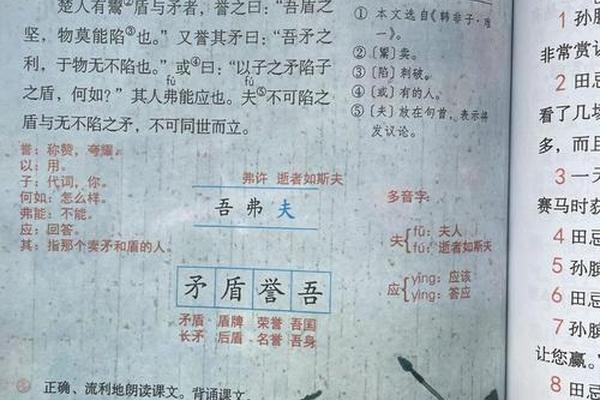 楚人有鬻①盾与矛者，誉之曰：“吾盾之
坚，物莫能陷③也。”又誉其矛曰：“吾矛之
利，于物无不陷也。”或④曰：“以子之矛陷子
fú fú
之盾，何如？”其人弗能应也。夫⑤不可陷之
盾与无不陷之矛，不可同世而立。
① 本文选自《韩非子·难
一》。
②〔鬻〕卖。
③〔陷〕刺破。
④〔或〕有的人。
⑤〔夫〕放在句首，表示将
发议论。
誉：称赞，夸耀。
以：用。
子：代词，你。
何如：怎么样。
弗能：不能。
应：回答。
其：指那个卖矛和盾的人。
弗许 逝者如斯夫
吾 弗 夫
多音字：
夫 fū：夫人
fú：逝者如斯夫
应 yīng：应该
yìng：答应
矛 盾 誉 吾
矛盾 盾牌 荣誉 吾国
长矛 后盾 名誉 吾身
正确、流利地朗读课文。背诵课文。
1 孙膑
非常赏识
2 田忌
看了几场
多，而且
3 一天
赛马时获
4 田忌
5 孙膑
6 田忌
7 孙膑
让您赢。”
8 田忌